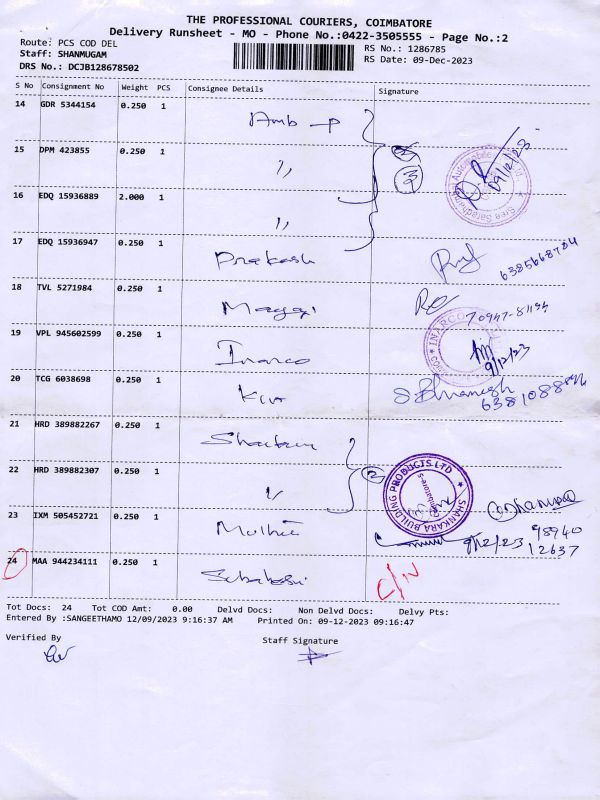 THE PROFESSIONAL COURIERS, COIMBATORE
Delivery Runsheet - MO - Phone No.:0422-3505555 - Page No.:2
Route: PCS COD DEL
RS No.: 1286785
Staff: SHANMUGAM
RS Date: 09-Dec-2023
DRS No.: DCJB128678502
S No Consignment No Weight PCS Consignee Details Signature
14 GDR 5344154 0.250 1 Amb - P
15 DPM 423855 0.250 1 〃 09/12/23
16 EDQ 15936889 2.000 1 〃
17 EDQ 15936947 0.250 1 Prakash
18 TVL 5271984 0.250 1 Maggi
19 VPL 945602599 0.250 1 Inarco INARCO 9/12/23
20 TCG 6038698 0.250 1
21 HRD 389882267 0.250 1
22 HRD 389882307 0.250 1 〃 2 SHANKARA BUILDING PRODUCTS LTD
23 IXM 505452721 0.250 1 9/12/2023 98940 12637
24 MAA 944234111 0.250 1 C/N
Tot Docs: 24 Tot COD Amt: 0.00 Delvd Docs: Non Delvd Docs: Delvy Pts:
Entered By :SANGEETHAMO 12/09/2023 9:16:37 AM Printed On: 09-12-2023 09:16:47
Verified By Staff Signature